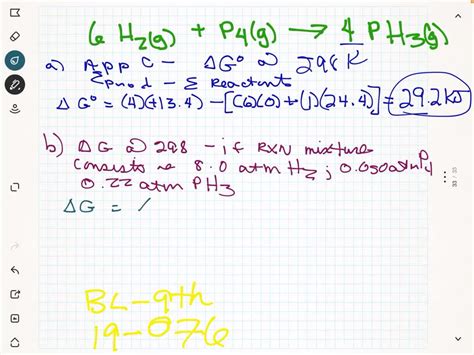 6 H₂(g) + P₄(g) → 4 PH₃(g)
a) App C – ΔG° @ 298 K
Σprod – Σ Reactants
ΔG° = (4)(13.4) – [(6)(0) + (1)(24.4)] = 29.2 kJ
b) ΔG @ 298 – if RXN mixture
consists 8.0 atm H₂ ; 0.050 atm P₄
0.22 atm PH₃
ΔG =
BL-9th
19-076
33 / 35